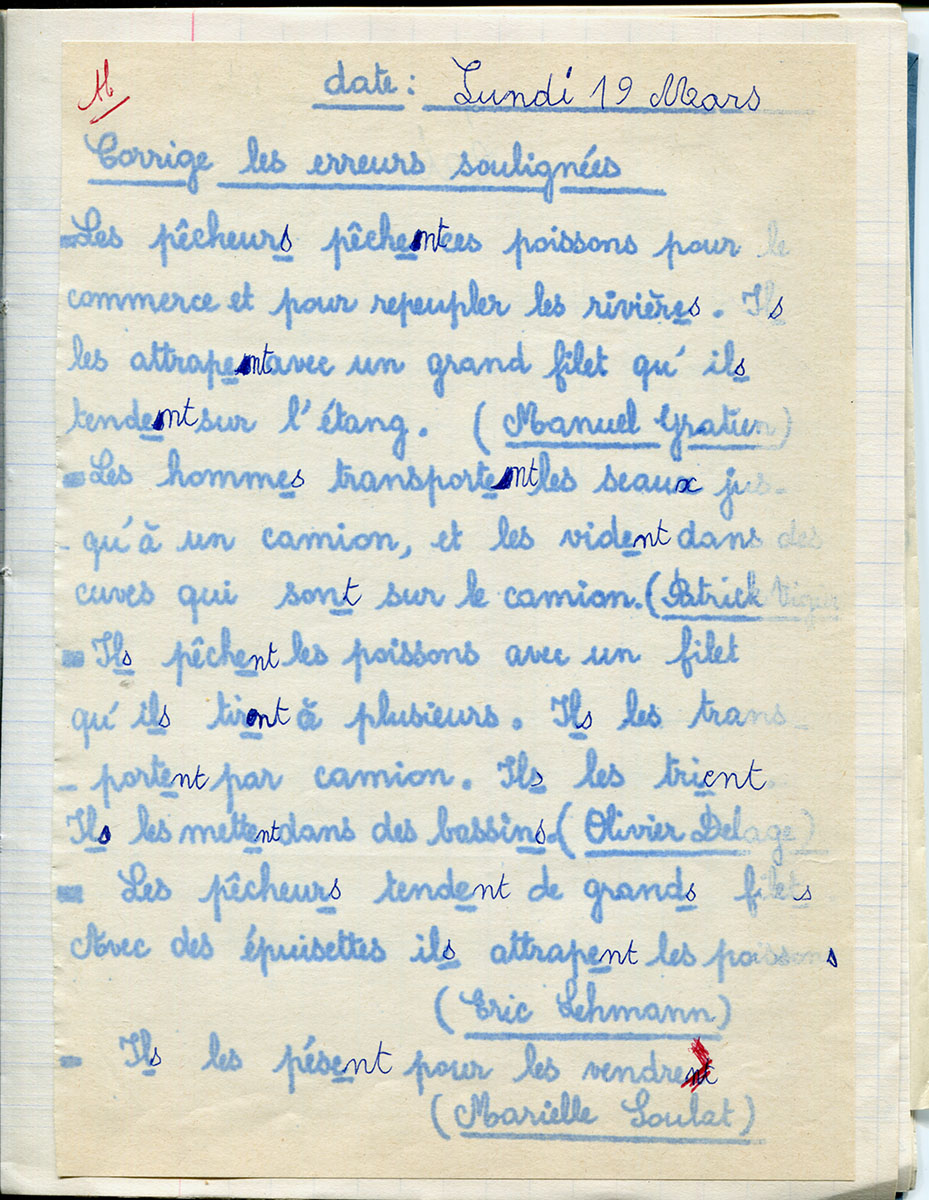 Ab
date : Lundi 19 Mars
Corrige les erreurs soulignées
- Les pêcheurs pêchent les poissons pour le
commerce et pour repeupler les rivières. Ils
les attrapent avec un grand filet qu'ils
tendent sur l'étang. (Manuel Gratien)
- Les hommes transportent les seaux jus-
- qu'à un camion, et les vident dans des
cuves qui sont sur le camion. (Patrick
- Ils pêchent les poissons avec un filet
qu'ils tirent à plusieurs. Ils les trans-
- portent par camion. Ils les trient
Ils les mettent dans des bassins. (Olivier Delage)
- Les pêcheurs tendent de grands filets
Avec des épuisettes ils attrapent les poissons
(Eric Lehmann)
- Ils les pésent pour les vendrent
(Marielle Soulat)